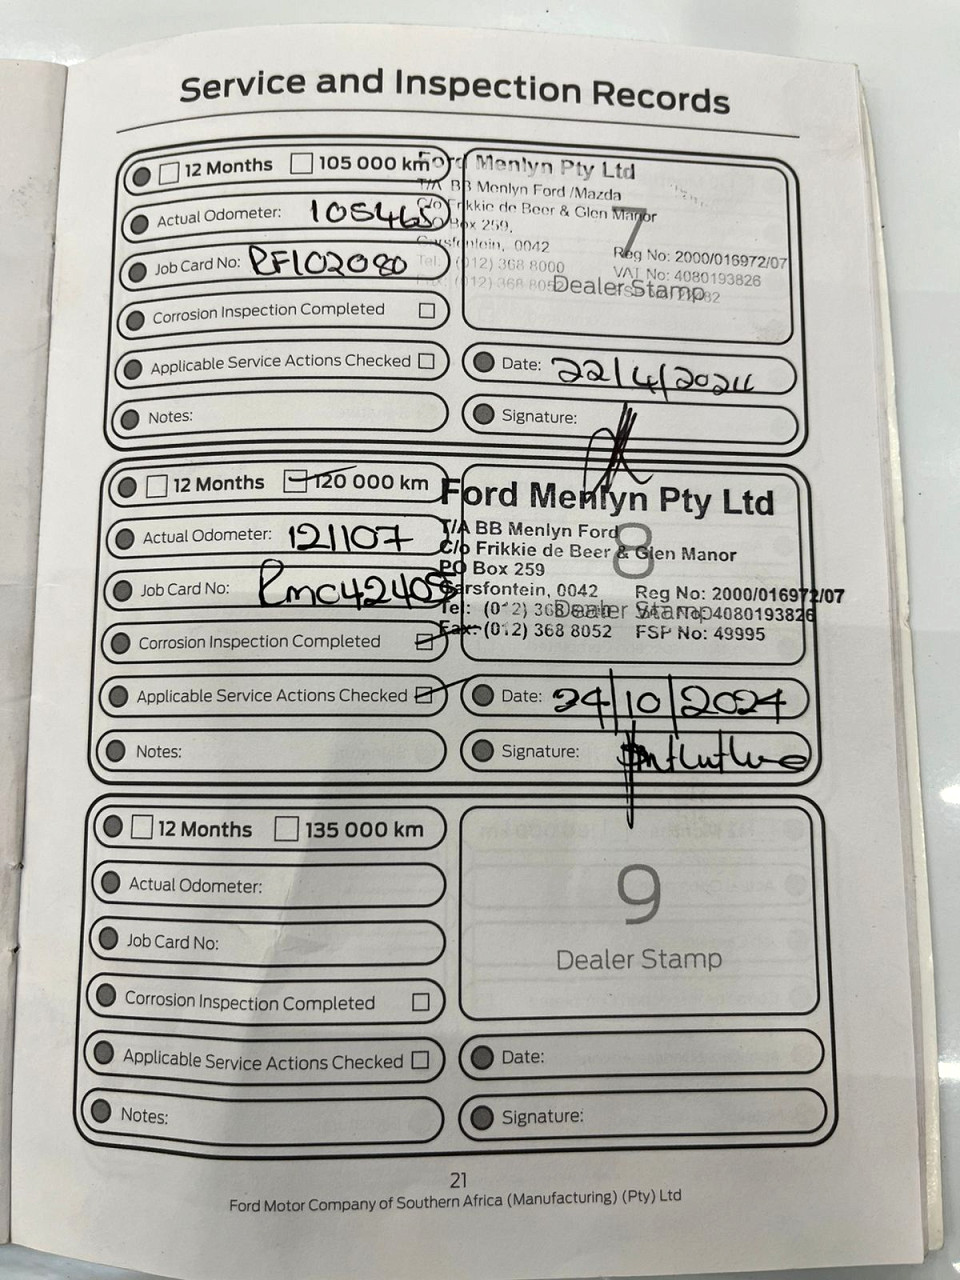 Service and Inspection Records
12 Months 105 000 km
Actual Odometer: 105465
Job Card No:
Corrosion Inspection Completed
Applicable Service Actions Checked
Notes:
Ford Menlyn Pty Ltd
T/A BB Menlyn Ford /Mazda
C/o Frikkie de Beer & Glen Manor
PO Box 259,
Garsfontein, 0042
Tel: (012) 368 8000
Fax: (012) 368 8052
Reg No: 2000/016972/07
VAT No: 4080193826
7
Dealer Stamp
Date: 22/4/2024
Signature:
12 Months 120 000 km
Actual Odometer: 121107
Job Card No:
Corrosion Inspection Completed
Applicable Service Actions Checked
Notes:
Ford Menlyn Pty Ltd
T/A BB Menlyn Ford
C/o Frikkie de Beer & Glen Manor
PO Box 259
Garsfontein, 0042
Tel: (012) 368
Fax: (012) 368 8052
Reg No: 2000/016972/07
VAT No 4080193826
FSP No: 49995
8
Dealer Stamp
Date: 24/10/2024
Signature:
12 Months 135 000 km
Actual Odometer:
Job Card No:
Corrosion Inspection Completed
Applicable Service Actions Checked
Notes:
9
Dealer Stamp
Date:
Signature:
21
Ford Motor Company of Southern Africa (Manufacturing) (Pty) Ltd